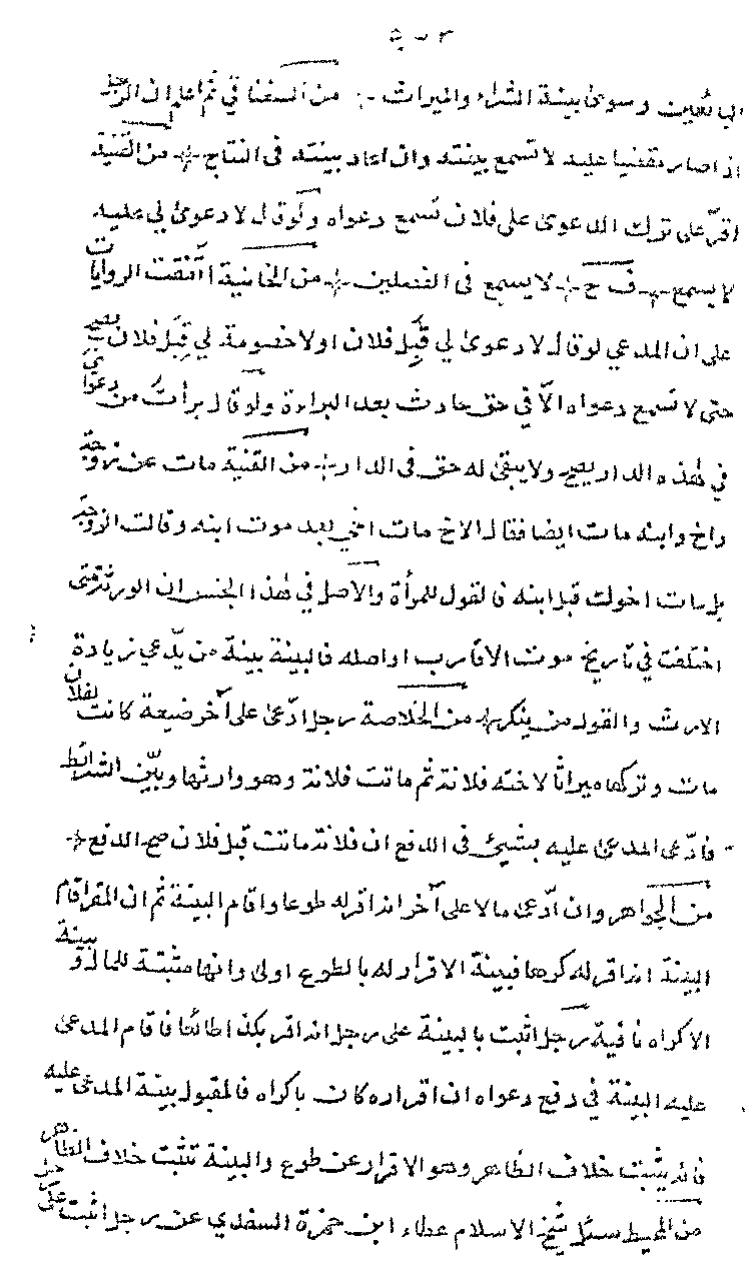 ٥٠٣
الباقيين وسوى بينة الشراء والميراث من السغناقي ثم اعلم ان الرجل
اذا صار مقضيا عليه لا تسمع بينته وان اعاد بينته في النتاج من القنية
اقر على ترك الدعوى على فلان تسمع دعواه ولو قال لا دعوى لي عليه
لا يسمع لا يسمع في الفصلين من الخانية اتفقت الروايات
على ان المدعي لو قال لا دعوى لي قبل فلان او لا خصومة لي قبل فلان يصح
حتى لا تسمع دعواه الا في حق حادث بعد البراءة ولو قال برأت من دعواي
في هذه الدار يصح ولا يبقى له حق في الدار من القنية مات عن زوجة
واخ وابنه مات ايضا فقال الاخ مات اخي بعد موت ابنه وقالت الزوجة
بل مات اخوك قبل ابنه فالقول للمرأة والاصل في هذا الجنس ان الورثة متى
اختلفت في تأريخ موت الاقارب او اصله فالبينة بينة من يدعي زيادة
الارث والقول من ينكر من الخلاصة رجل ادعى على آخر ضيعة كانت لفلان
مات وتركها ميراثا لاخته فلانة ثم ماتت فلانة وهو وارثها وبين الشرائط
فادعى المدعى عليه بشيئ في الدفع ان فلانة ماتت قبل فلان صح الدفع
من الجواهر وان ادعى مالا على آخر انه اقر له طوعا واقام البينة ثم ان المقر اقام
البينة انه اقر له كرها فبينة الاقرار له بالطوع اولى وانها مثبتة للمال وبينة
الاكراه نافية رجل اثبت بالبينة على رجل انه اقر بكذا طائعا فاقام المدعى
عليه البينة في دفع دعواه ان اقراره كان باكراه فالمقبول بينة المدعى عليه
فانه يثبت خلاف الظاهر وهو الاقرار عن طوع والبينة تثبت خلاف الظاهر
من المحيط سئل شيخ الاسلام عطاء ابن حمزة السغدي عن رجل اثبت على رجل